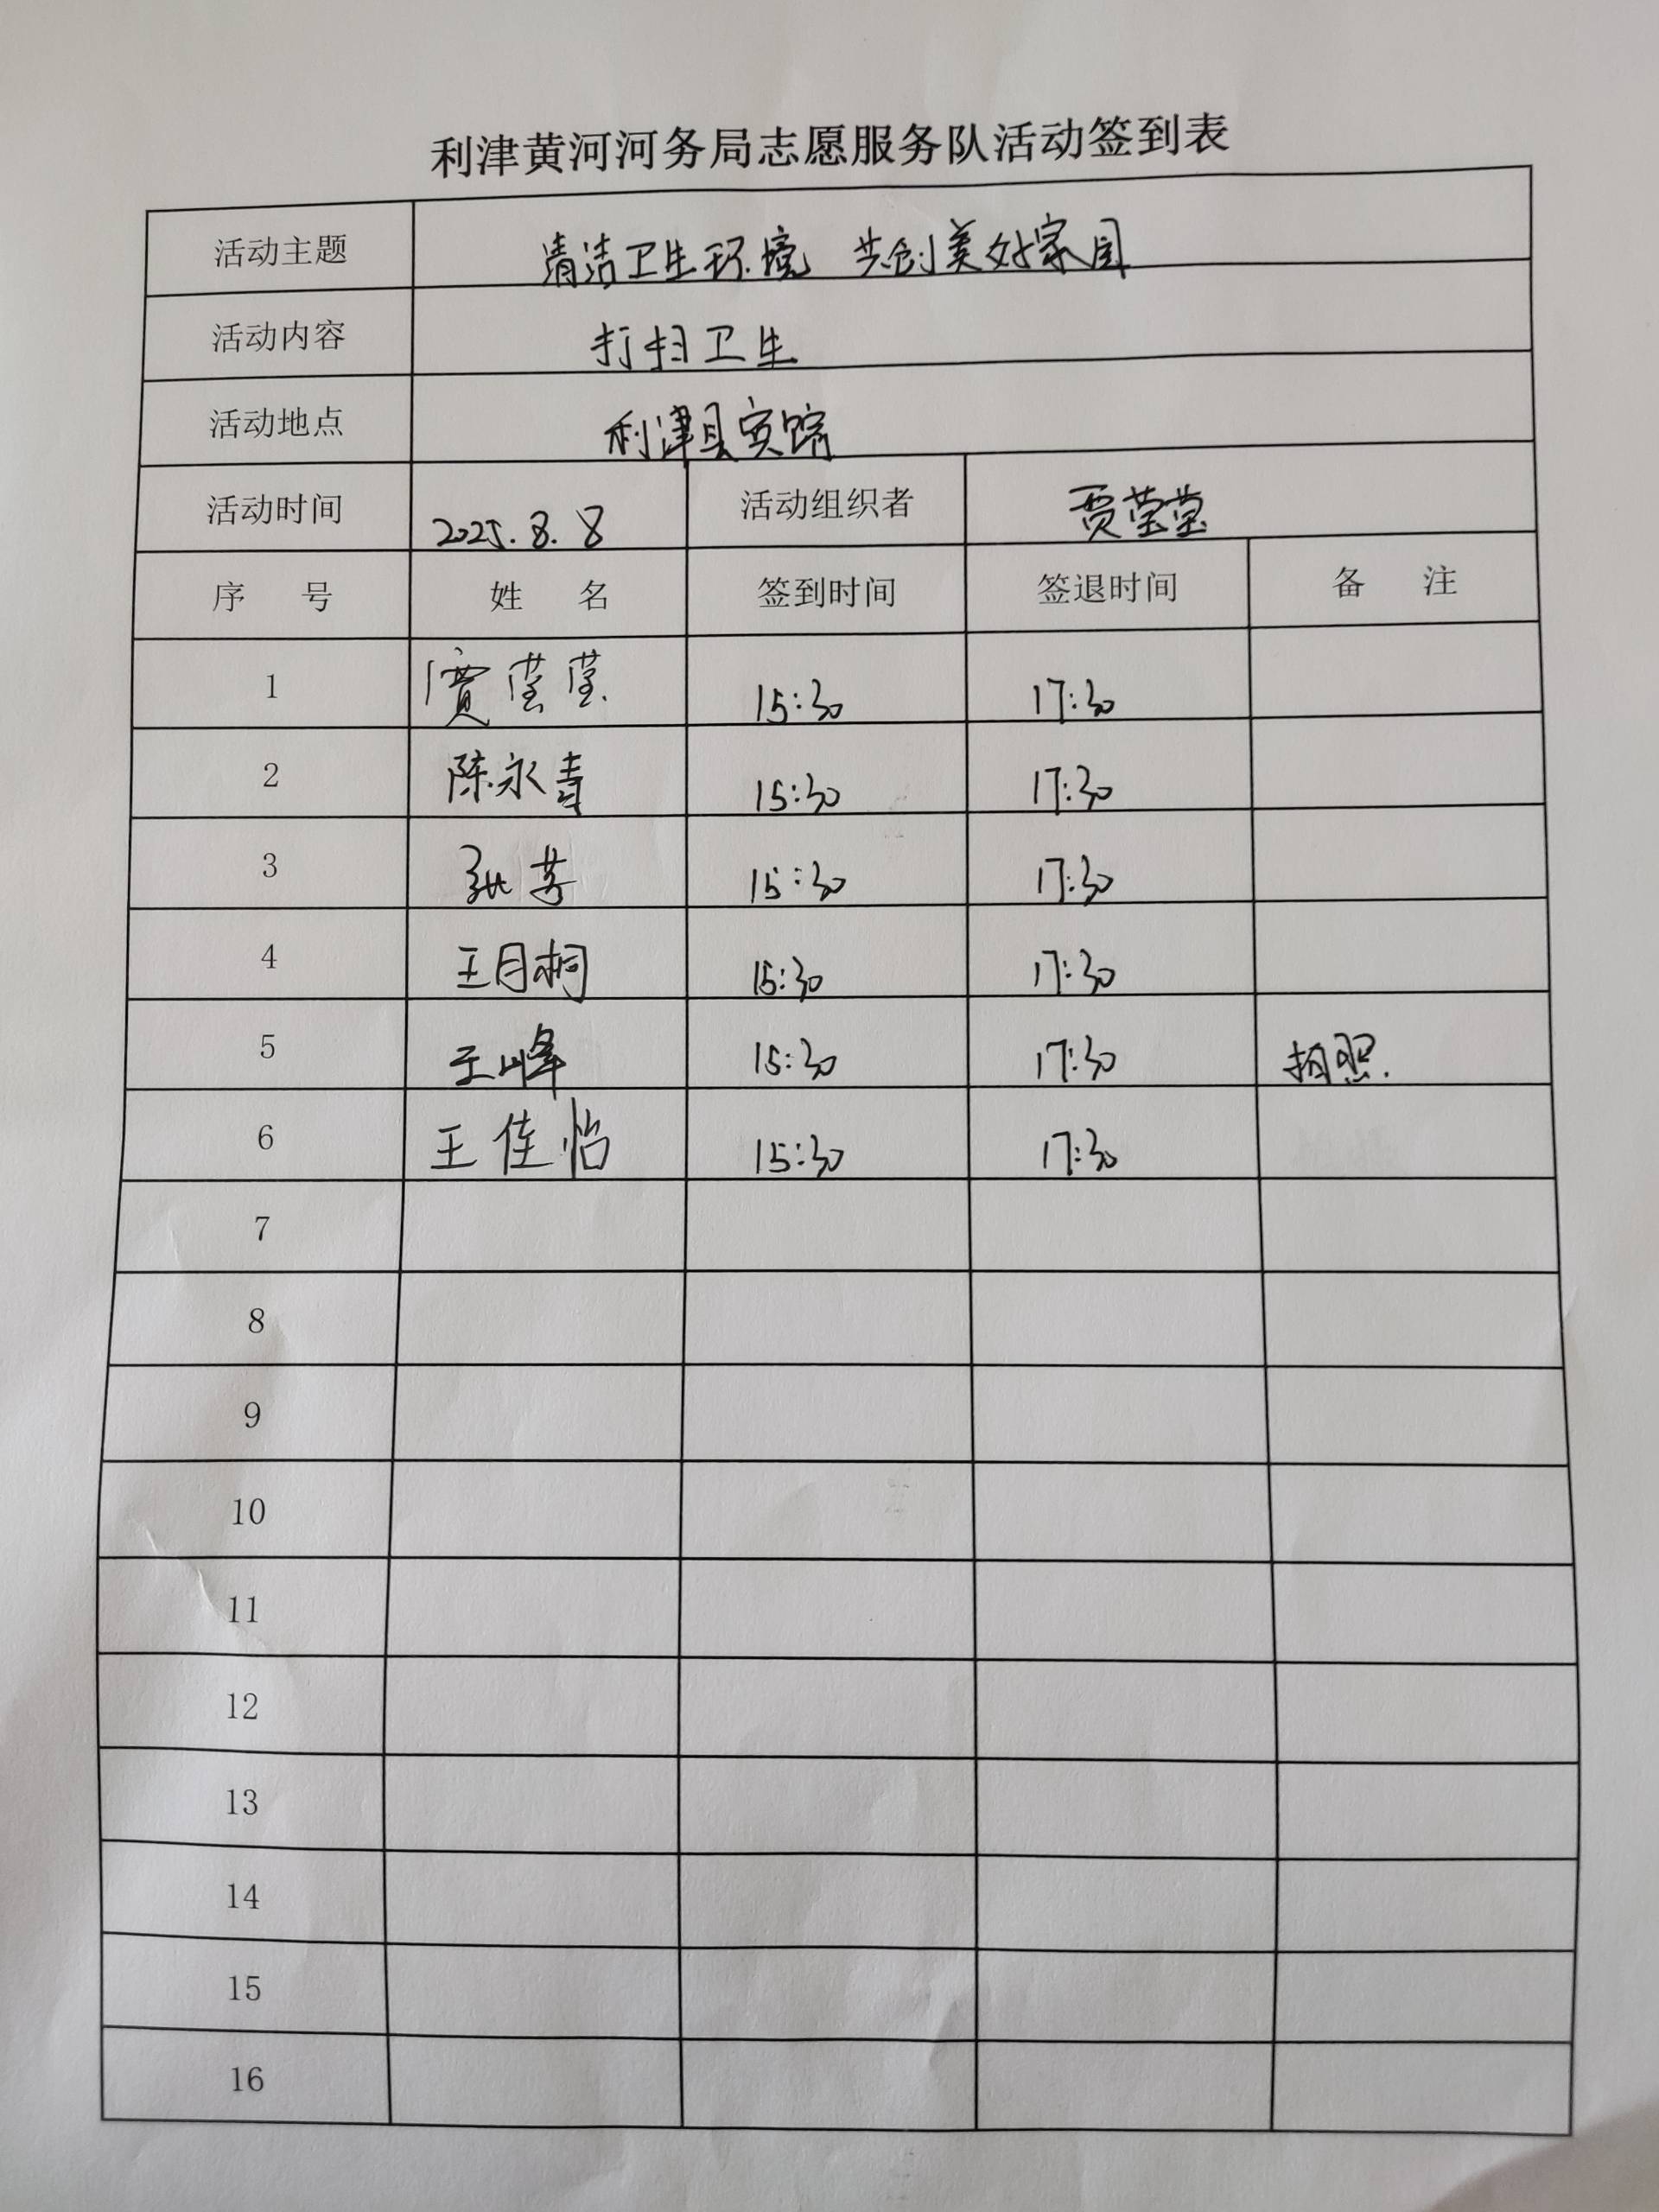 利津黄河河务局志愿服务队活动签到表
活动主题 清洁卫生环境 共创美好家园
活动内容 打扫卫生
活动地点 利津县宾馆
活动时间 2025.8.8 活动组织者 贾莹莹
序 号 姓 名 签到时间 签退时间 备 注
1 贾莹莹 15:30 17:30
2 陈永青 15:30 17:30
3 15:30 17:30
4 王月桐 15:30 17:30
5 王峰 15:30 17:30 拍照.
6 王佳怡 15:30 17:30
7
8
9
10
11
12
13
14
15
16